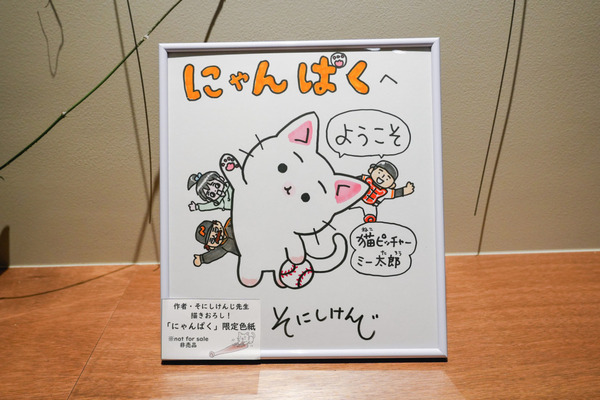 にゃんぱくへ
ようこそ
猫ピッチャー
ねこ
ミー太郎
たろう
そにしけんじ
作者・そにしけんじ先生
描きおろし！
「にゃんぱく」限定色紙
※not for sale
非売品